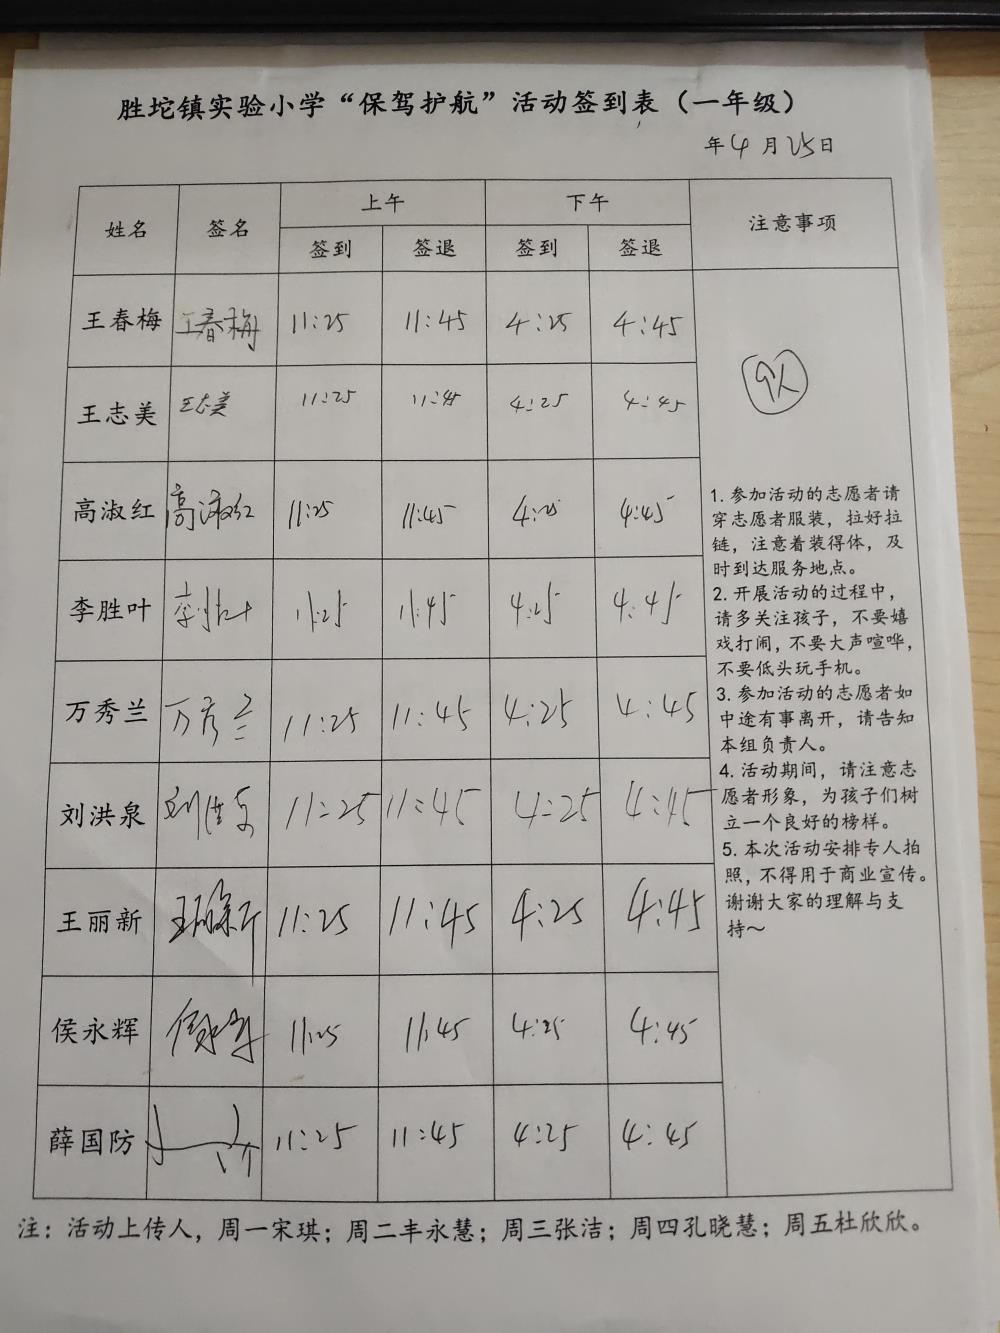 胜坨镇实验小学“保驾护航”活动签到表（一年级）
年4月25日
姓名 签名 上午 下午 注意事项
签到 签退 签到 签退
王春梅 王春梅 11:25 11:45 4:25 4:45
9人
王志美 王志美 11:25 11:45 4:25 4:45
高淑红 高淑红 11:25 11:45 4:25 4:45
李胜叶 李胜叶 11:25 11:45 4:25 4:45
万秀兰 万秀兰 11:25 11:45 4:25 4:45
刘洪泉 刘洪泉 11:25 11:45 4:25 4:45
王丽新 11:25 11:45 4:25 4:45
侯永辉 11:25 11:45 4:25 4:45
薛国防 11:25 11:45 4:25 4:45
1. 参加活动的志愿者请
穿志愿者服装，拉好拉
链，注意着装得体，及
时到达服务地点。
2. 开展活动的过程中，
请多关注孩子，不要嬉
戏打闹，不要大声喧哗，
不要低头玩手机。
3. 参加活动的志愿者如
中途有事离开，请告知
本组负责人。
4. 活动期间，请注意志
愿者形象，为孩子们树
立一个良好的榜样。
5. 本次活动安排专人拍
照，不得用于商业宣传。
谢谢大家的理解与支
持～
注：活动上传人，周一宋琪；周二丰永慧；周三张洁；周四孔晓慧；周五杜欣欣。